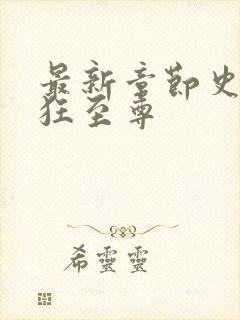 最新章節史
狂至尊
希靈靈